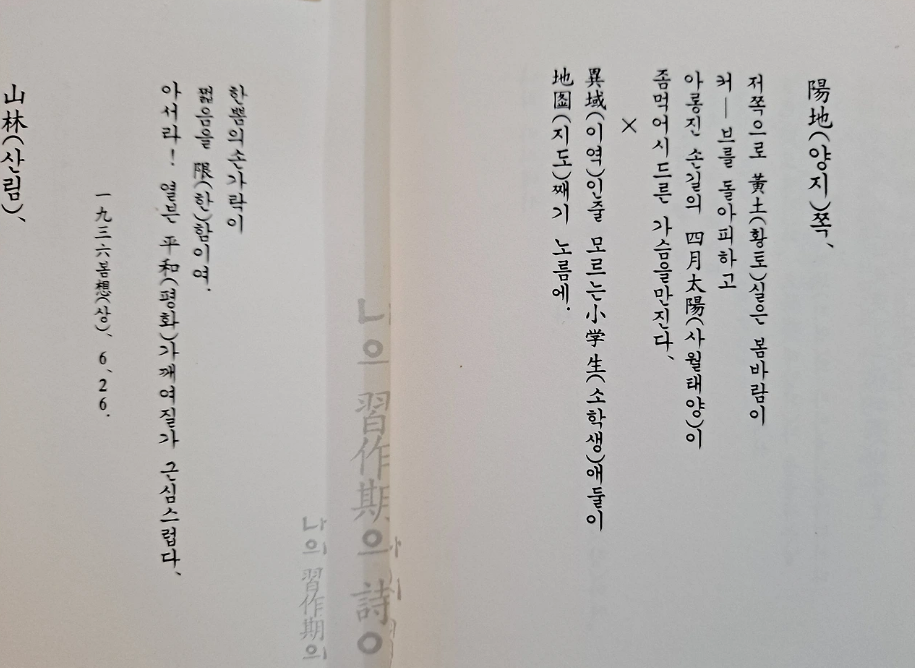 陽地(양지)쪽、
저쪽으로 黃土(황토)실은 봄바람이
커ㅣ브를 돌아피하고
아롱진 손길의 四月太陽(사월태양)이
좀먹어시드른 가슴을만진다、
×
異域(이역)인줄 모르는小学生(소학생)애들이
地圖(지도)째기 노름에.
한뼘의손가락이
쩗음을 限(한)함이여.
아서라! 열븐 平和(평화)가깨여질가 근심스럽다、
一九三六봄想(상)、6、26.
나의 習作期의 詩
나의 習作期의
山林(산림)、